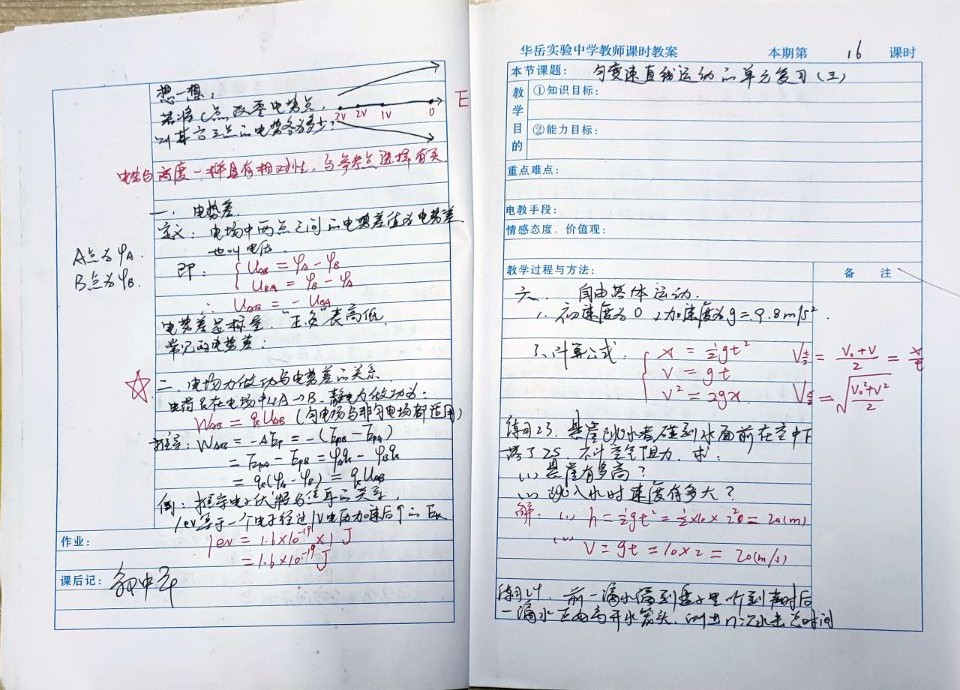 想一想：
若将C点改至电势点，
则其它三点的电势各为多少？
3V 2V 1V 0
E
电势与高度一样具有相对性，与参考点选择有关
一、电势差
定义：电场中两点之间的电势差值为电势差
也叫电压
A点为φA.
B点为φB.
即：
UAB = φA - φB
UBA = φB - φA
∴ UAB = - UBA
电势差是标量，正负表高低
常见的电势差：
二、电场力做功与电势差的关系
电荷q在电场中从A→B，静电力做功为：
WAB = qUAB (匀电场与非匀电场都适用)
推导：WAB = -ΔEp = -(EpB - EpA)
= EpA - EpB = φAq - φBq
= q(φA - φB) = qUAB
例：推导电子伏特与焦耳的关系
1ev等于一个电子经过1V电压加速后个的Ek
1ev = 1.6×10⁻¹⁹×1 J
= 1.6×10⁻¹⁹ J
作业：
课后记：
华岳实验中学教师课时教案 本期第 16 课时
本节课题： 匀变速直线运动的单元复习(三)
教学目的
①知识目标：
②能力目标：
重点难点：
电教手段：
情感态度、价值观：
教学过程与方法： 备 注
六、自由落体运动.
1、初速度为0，加速度为g=9.8m/s².
2、计算公式.
x = ½gt²
v = gt
v² = 2gx
Vt/2 = (V0+V)/2 = x/t
Vx/2 = √((V0²+V²)/2)
练习23. 悬崖跳水者碰到水面前在空中下
落了2S，不计空气阻力，求：
(1) 悬崖有多高？
(2) 跳入水时速度有多大？
解：(1) h = ½gt² = ½×10×2² = 20(m)
(2) V = gt = 10×2 = 20(m/s)
练习24. 前一滴水滴到盘子里听到声时后
一滴水正好离开水笼头，测出n次水击总时间